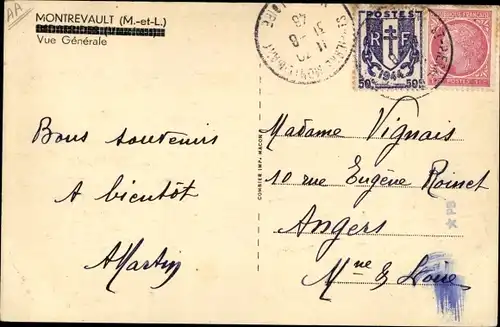 AA
MONTREVAULT (M.-et-L.)
Vue Générale
Bons souvenirs
A bientôt
AMartin
COMBIER IMP. MACON
POSTES
RF
1944
50c 50c
31 -8
48
LOIRE
Madame Vignais
10 rue Eugène Roinet
Angers
Mne & Loire
*PB